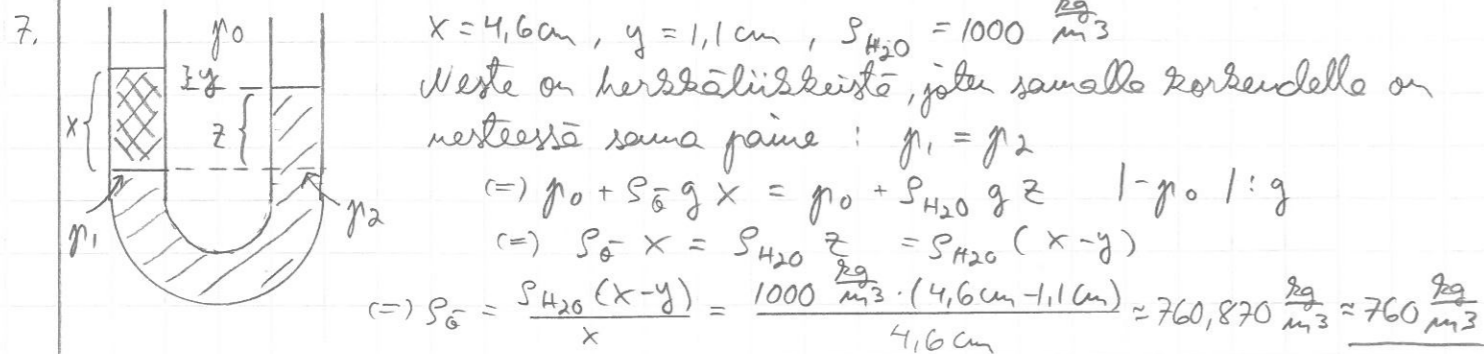 7.
p0
x = 4,6 cm , y = 1,1 cm , ρH₂O = 1000 kg/m³
y
x
z
p1
p2
Neste on herkkäliikkeistä, joten samalla korkeudella on
nesteessä sama paine : p₁ = p₂
(=) p₀ + ρö g x = p₀ + ρH₂O g z |-p₀ |: g
(=) ρö x = ρH₂O z = ρH₂O (x-y)
(=) ρö = ρH₂O (x-y) / x = 1000 kg/m³ · (4,6 cm - 1,1 cm) / 4,6 cm ≈ 760,870 kg/m³ ≈ 760 kg/m³